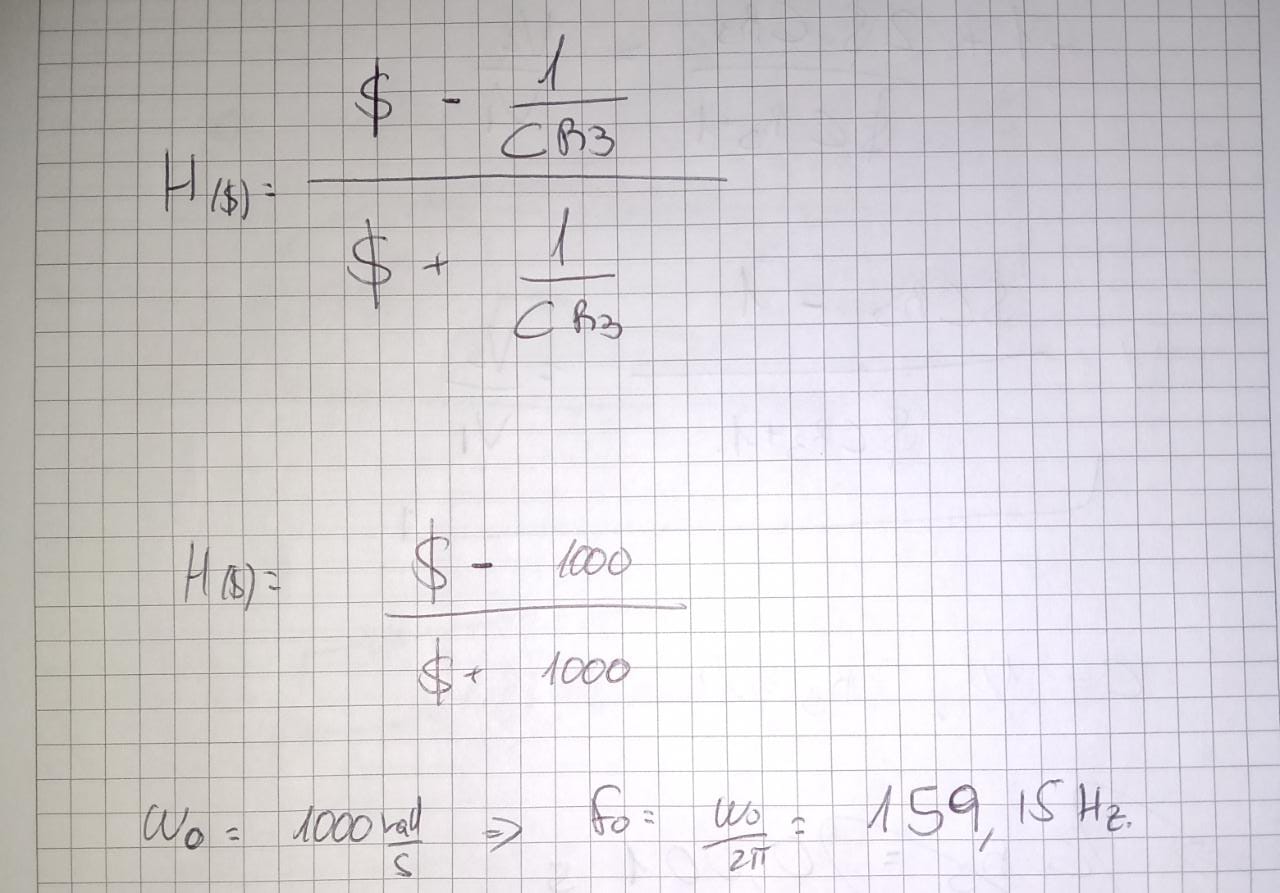 H($) = ($ - 1/(CR3)) / ($ + 1/(CR3))
H($) = ($ - 1000) / ($ + 1000)
ω0 = 1000 rad/s => f0 = ω0/2π = 159,15 Hz.